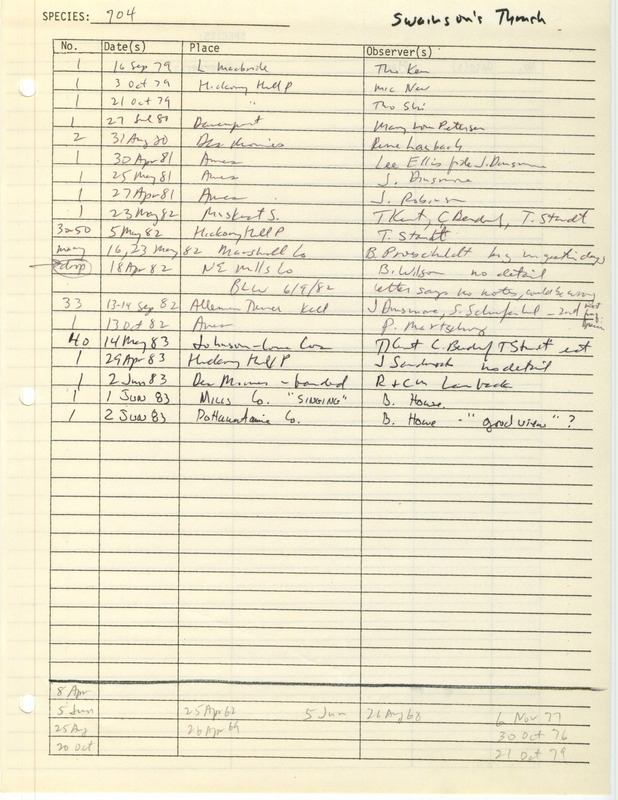 SPECIES: 904 Swainson's Thrush
No. Date(s) Place Observer(s)
1 16 Sep 79 L Macbride Tho Ken
1 3 Oct 79 Hickory Hill P Mic New
1 21 Oct 79 " Tho Shi
1 27 Jul 80 Davenport Mary Lou Petersen
2 31 Aug 80 Des Moines Rene Laubach
1 30 Apr 81 Ames Lee Ellis fide J. Dinsmore
1 25 May 81 Ames J. Dinsmore
1 27 Apr 81 Ames J. Robinson
1 23 May 82 Muskrat S. T Kent, C Bendorf, T. Staudt
30-50 5 May 82 Hickory Hill P T. Staudt
many 16, 23 May 82 Marshall Co B. Proescholdt big migration days
drop 18 Apr 82 NE Mills Co B. Wilson no detail
BLW 6/9/82 letter says no notes, could be wrong
33 13-14 Sep 82 Alleman Tower kill J Dinsmore, S. Schaufenbuel
1 13 Oct 82 Ames P. Martsching
40 14 May 83 Johnson-Iowa Cos T Kent C. Bendorf T Staudt
1 29 Apr 83 Hickory Hill P J Sandrock no detail
1 2 Jun 83 Des Moines - banded R + C M Laubach
1 1 JUN 83 MILLS Co. "SINGING" B. Howe.
1 2 JUN 83 Pottawattamie Co. B. Howe - "good view" ?
8 Apr
5 Jun 25 Apr 62 5 Jun 26 Aug 68 6 Nov 77
25 Aug 26 Apr 69 30 Oct 76
20 Oct 21 Oct 79